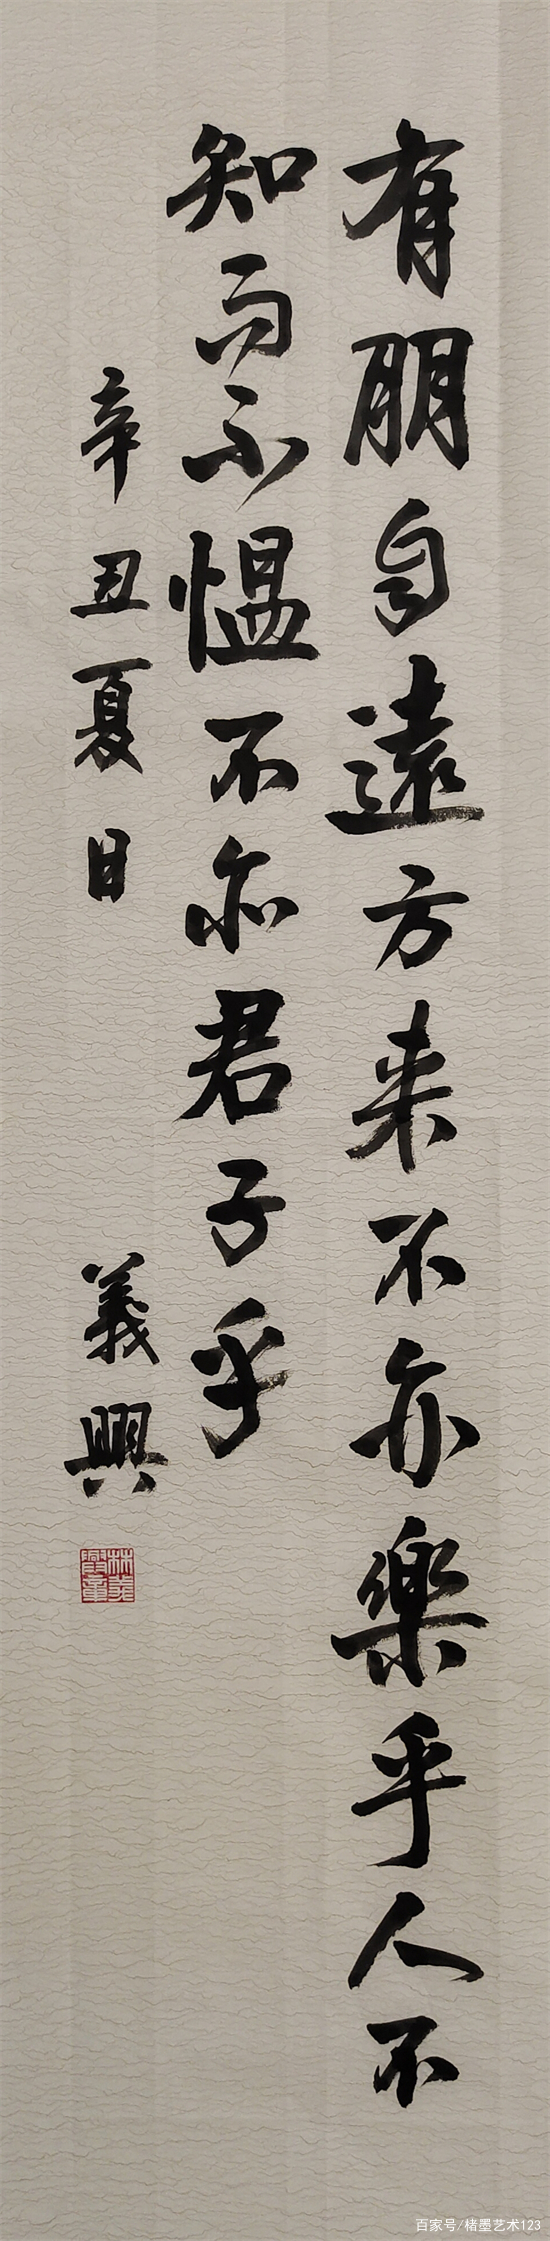 有朋自遠方来不亦樂乎人不
知而不愠不亦君子乎
辛丑夏日
義興
百家号/楮墨艺术123